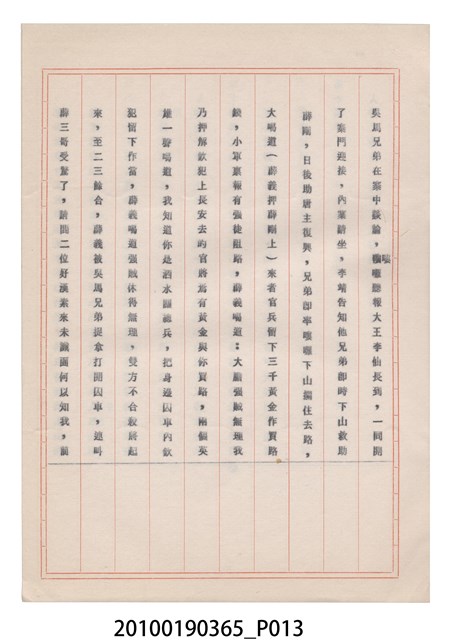 吳馬兄弟在寨中談論，嘍囉聽報大王李仙長到，一同開
了寨門迎接，內寨請坐，李靖告知他兄弟卽時下山救助
薛剛，日後助唐主復興，兄弟卽率嘍囉下山攔住去路，
大喝道（薛義押薛剛上）來者官兵留下三千黃金作買路
錢，小軍稟報有強徒阻路，薛義喝道：大膽強賊無理我
乃押解欽犯上長安去的官兵焉有黃金與你買路，兩個英
雄一聲喝道，我知道你是泗水關總兵，把身邊囚車內欽
犯留下作當，薛義喝道強賊休得無理，雙方不合殺將起
來，至二三餘合，薛義被吳馬兄弟捉拿打開囚車，連叫
薛三哥受驚了，請問二位好漢素來未識面何以知我，前
20100190365_P013